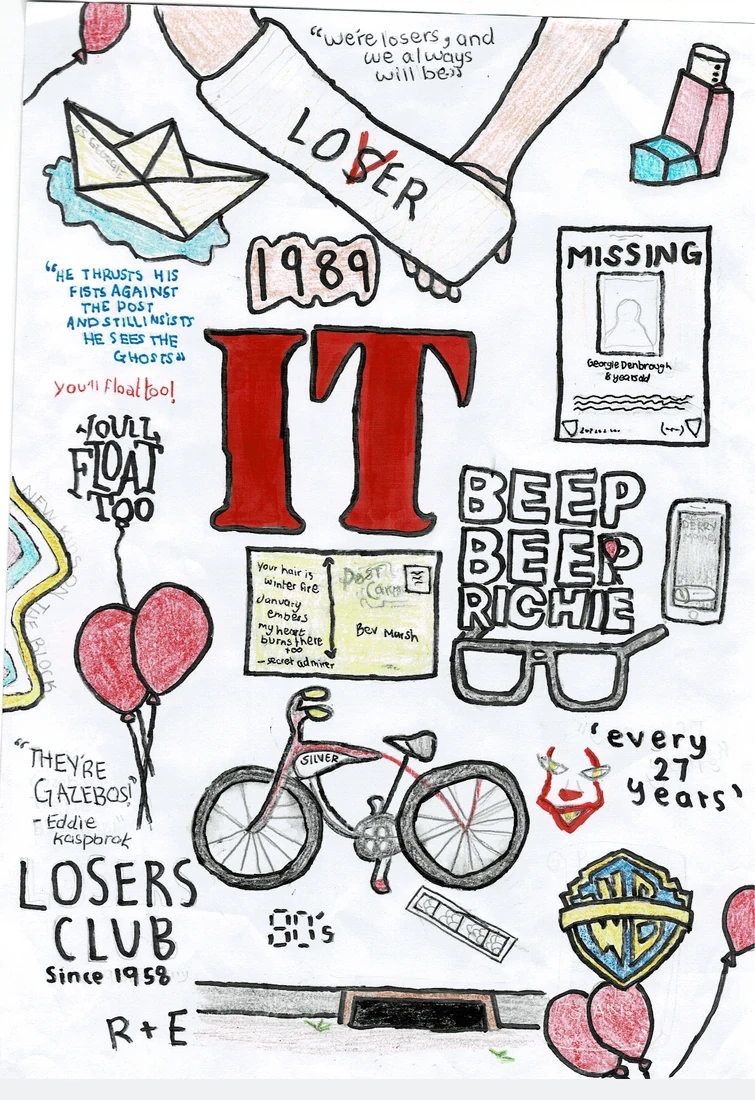 "we're losers, and
we always
will be"
LOSER
SS GEORGIE
1989
MISSING
Georgie Denbrough
8 years old
"HE THRUSTS HIS
FISTS AGAINST
THE POST
AND STILL INSISTS
HE SEES THE
GHOSTS"
you'll float too!
YOU'LL
FLOAT
TOO
IT
BEEP
BEEP
RICHIE
DERRY
NEW KIDS ON THE BLOCK
your hair is
winter fire
January
embers
my heart
burns there
too
- secret admirer
Post
Card
Bev Marsh
SILVER
'every
27
years'
"THEY'RE
GAZEBOS!"
- Eddie
Kaspbrak
LOSERS
CLUB
Since 1958
80's
WB
R + E